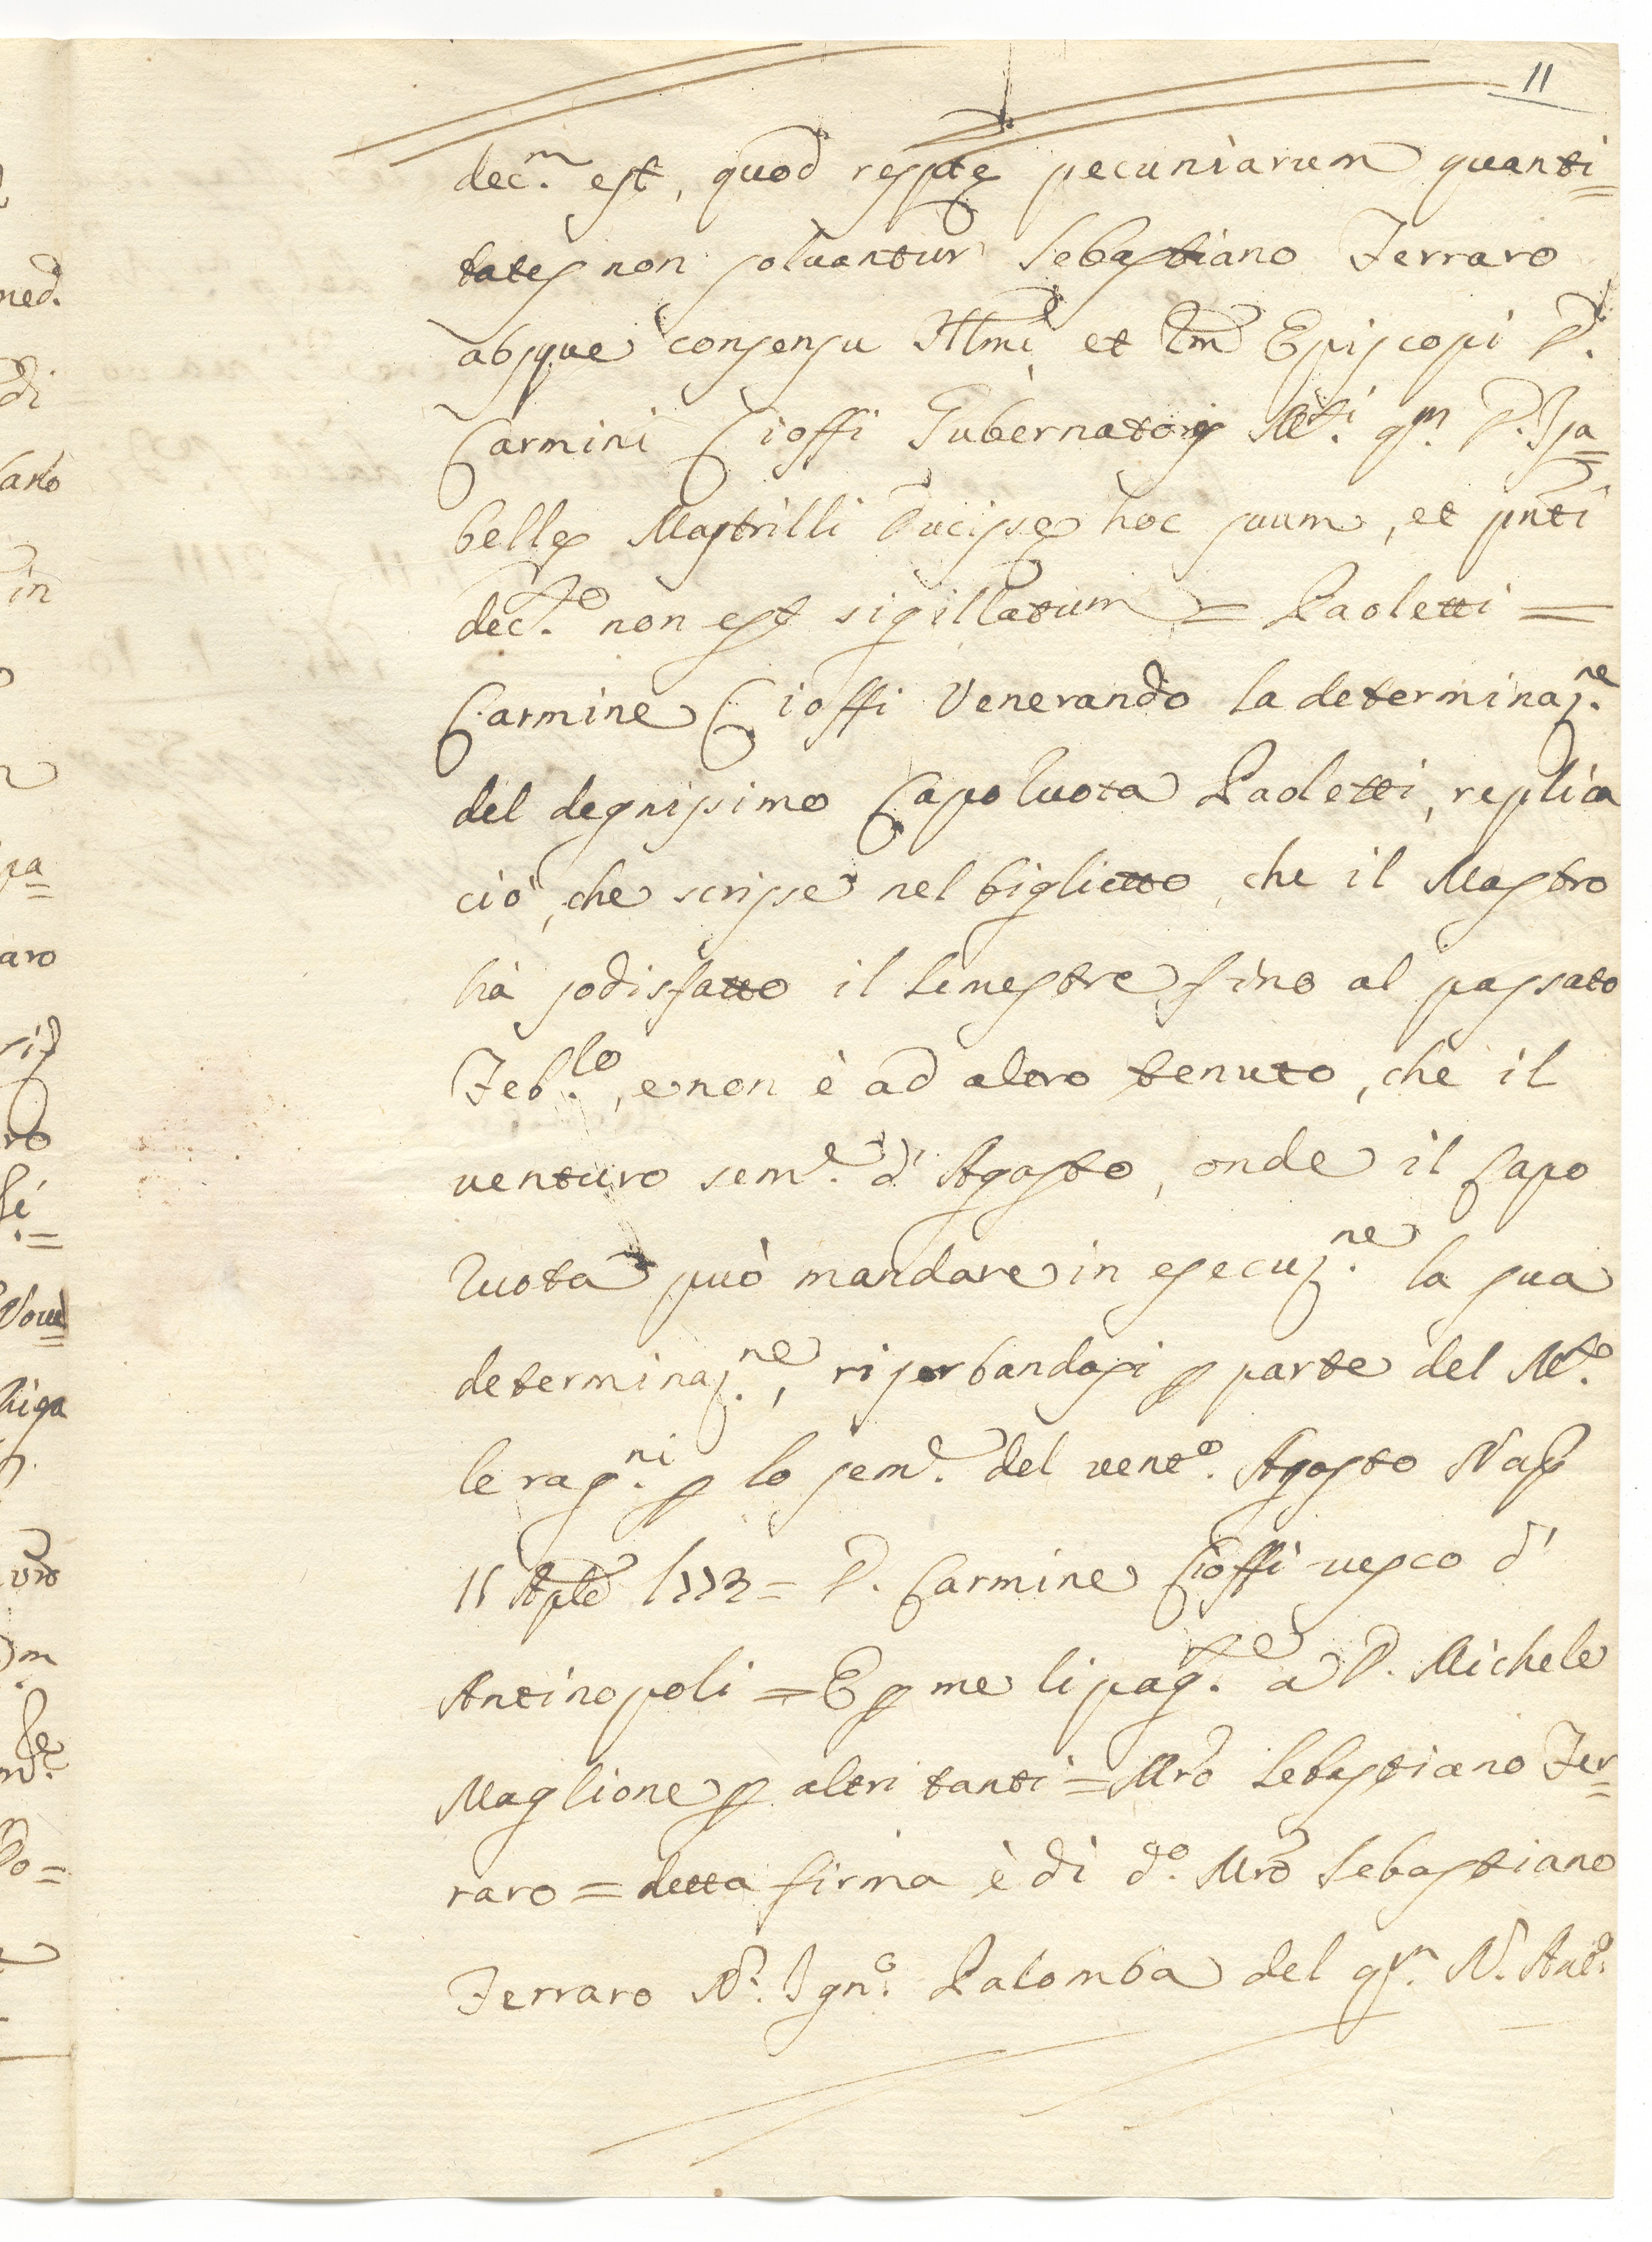 11
dec.m est, quod respte pecuniarum quanti=
tates non solvantur Sebastiano Ferraro
absque consensu Illmi et Rmi Episcopi D.
Carmini Cioffi Gubernatoris Mti. qm. D. Isa=
belle Mastrilli Ducisse hoc suum, et pnti
dec.to non est sigillatum = Paoletti =
Carmine Cioffi Venerando la determinaz.ne
del degnissimo CapoRuota Paoletti, replica
ciò, che scrisse nel biglietto, che il Mastro
hà sodisfatto il Semestre fino al passato
Feb.ro, e non è ad altro tenuto, che il
venturo sem.e d'Agosto, onde il Capo
Ruota può mandare in esecuz.ne la sua
determinaz.ne, riserbandosi p parte del M.to
le rag.ni p lo sem.e del vent.o Agosto Nap
Aple = D. Carmine Cioffi vesco d'
Antinopoli = E p me li pag.te a D. Michele
Maglione p altri tanti = Mro Sebastiano Fer=
raro = detta firma è di d.o Mro Sebastiano
Ferraro Nr. Ign.o Palomba del qm. N. Ant.o